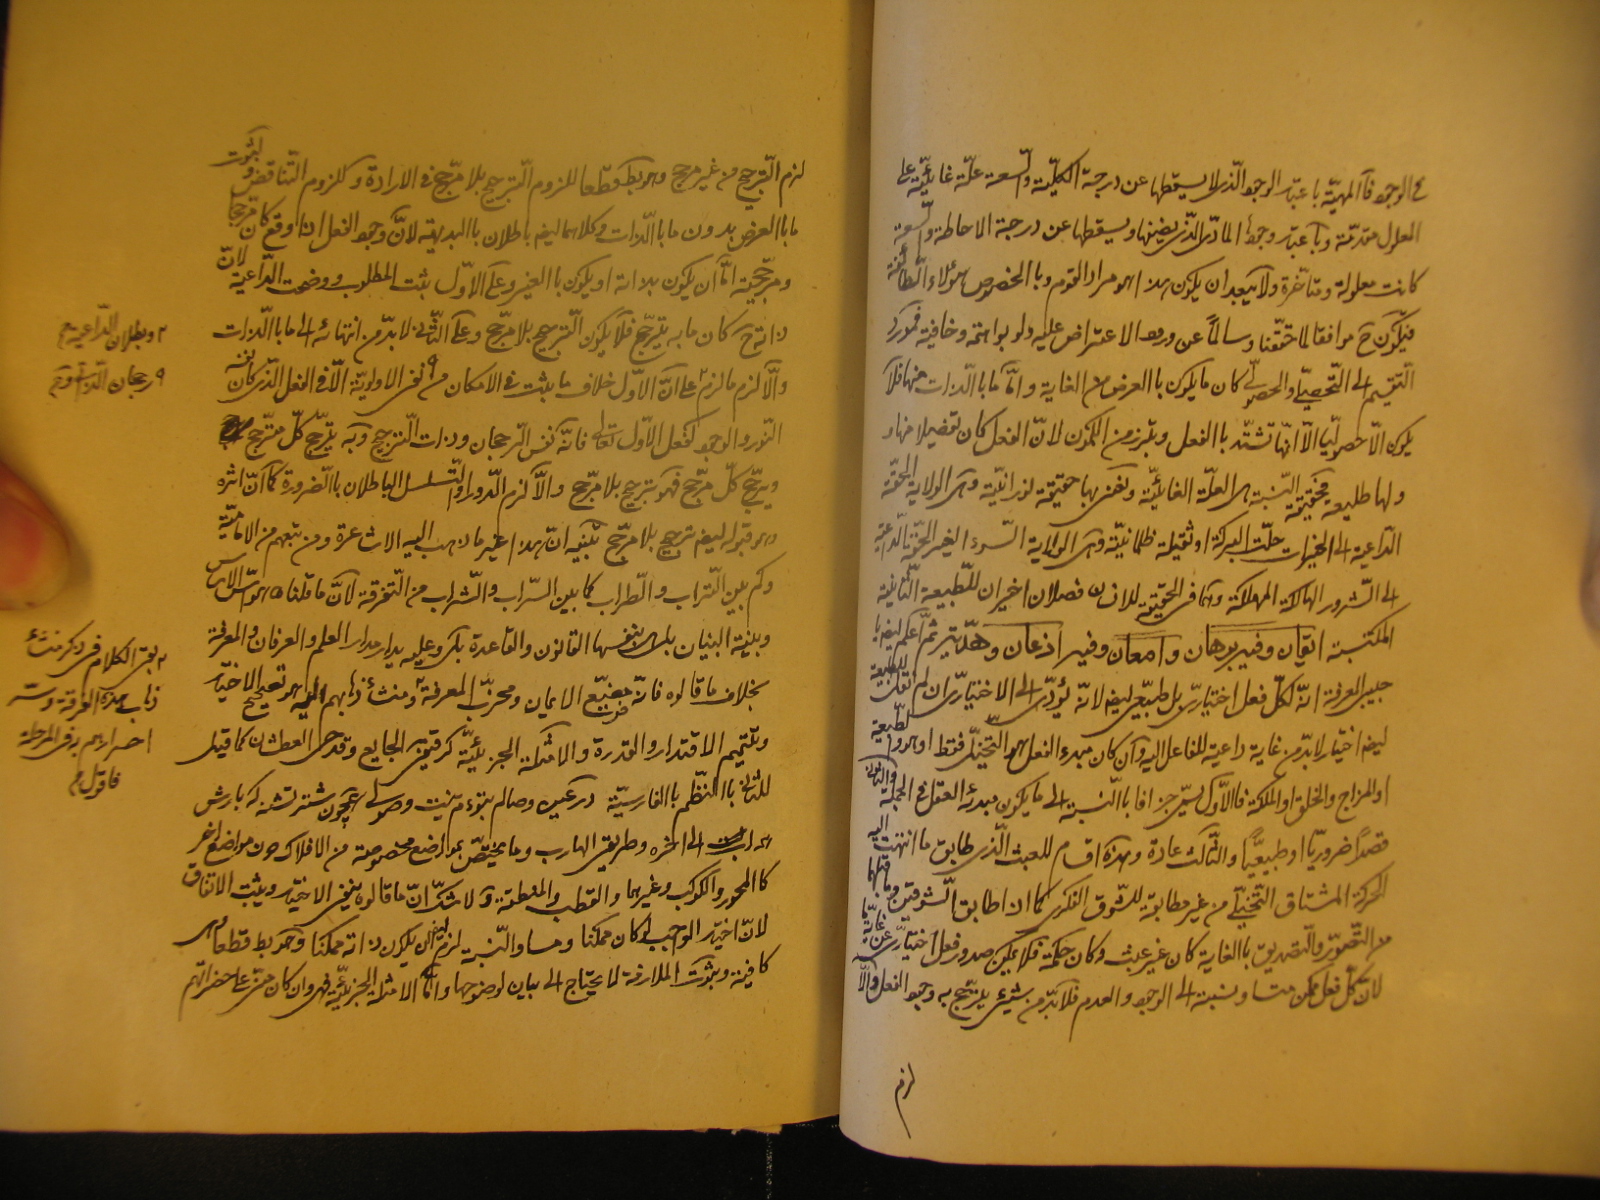 في الوجود فالمهية باعتبار الوجود الذي لا يسقطها عن درجة الكلية والسعة علة غائية على
المعلول متقدمة وباعتبار وجود المادي الذي يضيقها ويسقطها عن درجة الاحاطة والسعة
كانت معلولة ومتأخرة ولا يبعد ان يكون هذا هو مراد القوم وبالخصوص هؤلاء الطائفة
فيكون ح موافقا لما حققنا وسالما عن ورود الاعتراض عليه
التقسيم الى التحصيلي والحصولي كان ما يكون باالعرض من الغاية واما ما باالذات منها فلا
يكون الا حصوليا الا انها تشتد باالفعل وتبرز من الكمون لان الفعل كان تفصيلا منها و
ولها طليعة حقيقة النسبة هي العلة الغائية ونعني بها حقيقة نورانية وهي الولاية الحقة
الداعية الى الخيرات جلت البركة او ثقيلة ظلمانية وهي الولاية السوء الغير الحقة الداعية
الى الشرور الهالكة المهلكة وهما في الحقيقة فصلان اخيران للطبيعة الثانية
المكتسبة اتقان وفير برهان وامعان وفير اذعان وهداية ثم اعلم ايضا يا
حبيبي العرفة انه لكل فعل اختياري بل طبيعي ايضا لانه يؤدي الى الاختياري ان لم تقل للطبيعة
ايضا اختيار لابد من غاية داعية للفاعل اليه وان كان مبدء الفعل هو التخيل فقط او هو والطبيعة
او المزاج والخلق او الملكة فالاول يسمى جزافا باالنسبة الى ما يكون مبدئه العقل في الجملة والثاني
قصدا ضروريا او طبيعيا والثالث عادة وهذه اقسام للعبث الذي طابق ما انتهت اليه
الحركة المشتاق التخيلي من غير مطابقة للشوق الفكري كما اذا طابق الشوقين وما قبلهما
من التصور والتصديق باالغاية كان غير عبث وكان حكمة فلا يمكن صدور فعل اختياري عن غاية ما
لان كل فعل ممكن متساو نسبته الى الوجود والعدم فلا بد من شيء يترجح به وجود الفعل والا
لزم
لزم الترجيح من غير مرجح وهو بط قطعا للزوم الترجيح بلا مرجح في الارادة وكلزوم التناقض ولثبوت
ما باالعرض بدون ما باالذات وكلاهما ايضا باطلان باالبديهة لان وجود الفعل اذا وقع كان مرجحا
ومرجحية اما ان يكون بذاته او يكون باالغير وعلى الاول ثبت المطلوب ووضحت الداعية لان
ذاته ح كان ما به يترجح فلا يكون الترجيح بلا مرجح وعلى الثاني لابد من انتهائه الى ما باالذات
والا لزم ما لزم على ان الاول خلاف ما يثبت في الامكان من نفي الاولوية الا في الفعل الذي كان نفسه
النور والوجود كفعل الاول تعالى فانه نفس الرجحان وذات الترجيح وبه يترجح كل مترجح
ويرجح كل مرجح فهو ترجيح بلا مرجح والا لزم الدور او التسلسل الباطلان باالضرورة كما ان اثره
وهو قبوله ايضا ترجح بلا مرجح تنبيه ان هذا غير ما ذهب اليه الاشاعرة ومن تبعهم من الامامية
وكم بين التراب والطراب كما بين السراب والشراب من التفرقة لان ما قلناه هو اس الاساس
وبنية البنيان بل هي بنفسها القانون والقاعدة بل وعليه يدار مدار العلم والعرفان والمعرفة
بخلاف ما قالوه فانه مضيع الايمان ومخرب المعرفة ومنشاء ذهابهم اليه هو تصحيح الاختيار
وتتميم الاقتدار والقدرة والامثلة الجزئية كرغيفي الجايع وقدحي العطشان كما قيل
للثاني باالنظم باالفارسية در عين وصالم بتو ميت وصولي چون شتر تشنه كه بارش
هراب است الى اخره وطريقي الهارب وما يختص بمواضع مخصوصة من الافلاك دون مواضع اخر
كالمحور والكوكب وغيرهما والقطب والمنطقة ولا شك ان ما قالوه ينفي الاختيار ويثبت الاتفاق
لان اختيار الواجب لو كان ممكنا ومساو النسبة لزم ايضا ان يكون ذاته ممكنا وهو بط قطعا وهي
كافية وثبوت الملازمة لا يحتاج الى بيان لوضوحها واما الامثلة الجزئية فهي وان كان
وبطلان الداعية م
رجحان الذوات م
بقي الكلام في ذكر منشاء
ذهاب هذه الفرقة وسر
اصرارهم في هذه المرحلة
فاقول م